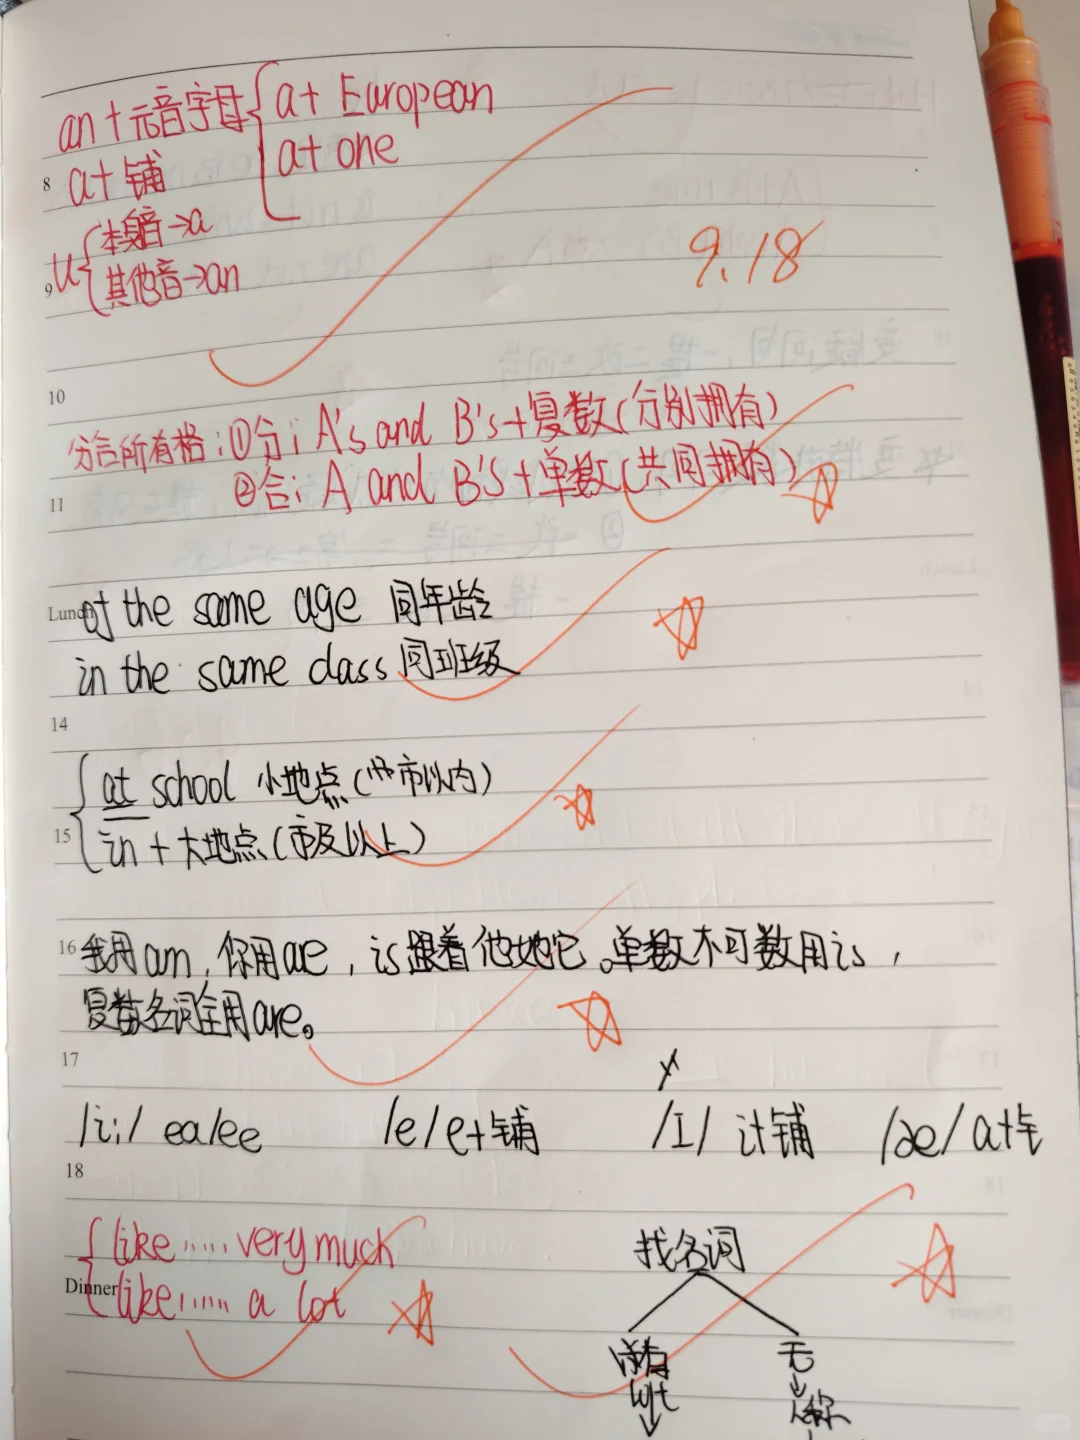 an+元音字母 { a+ European
a+ 铺 { a+ one
8
u { 本身音→a
9 其他音→an
9.18
10
分合所有格:①分: A's and B's+复数(分别拥有)
②合: A and B's+单数(共同拥有)
11
Lunch of the same age 同年龄
in the same class 同班级
14
at school 小地点(市以内)
15 in + 大地点(市及以上)
16 我用am, 你用are, is跟着他她它。单数不可数用is,
复数名词全用are。
17
/i:/ ea/ee /e/ e+铺 /I/ i+铺 /æ/ a+
18
like ...... very much 找名词
Dinner like ...... a lot
无